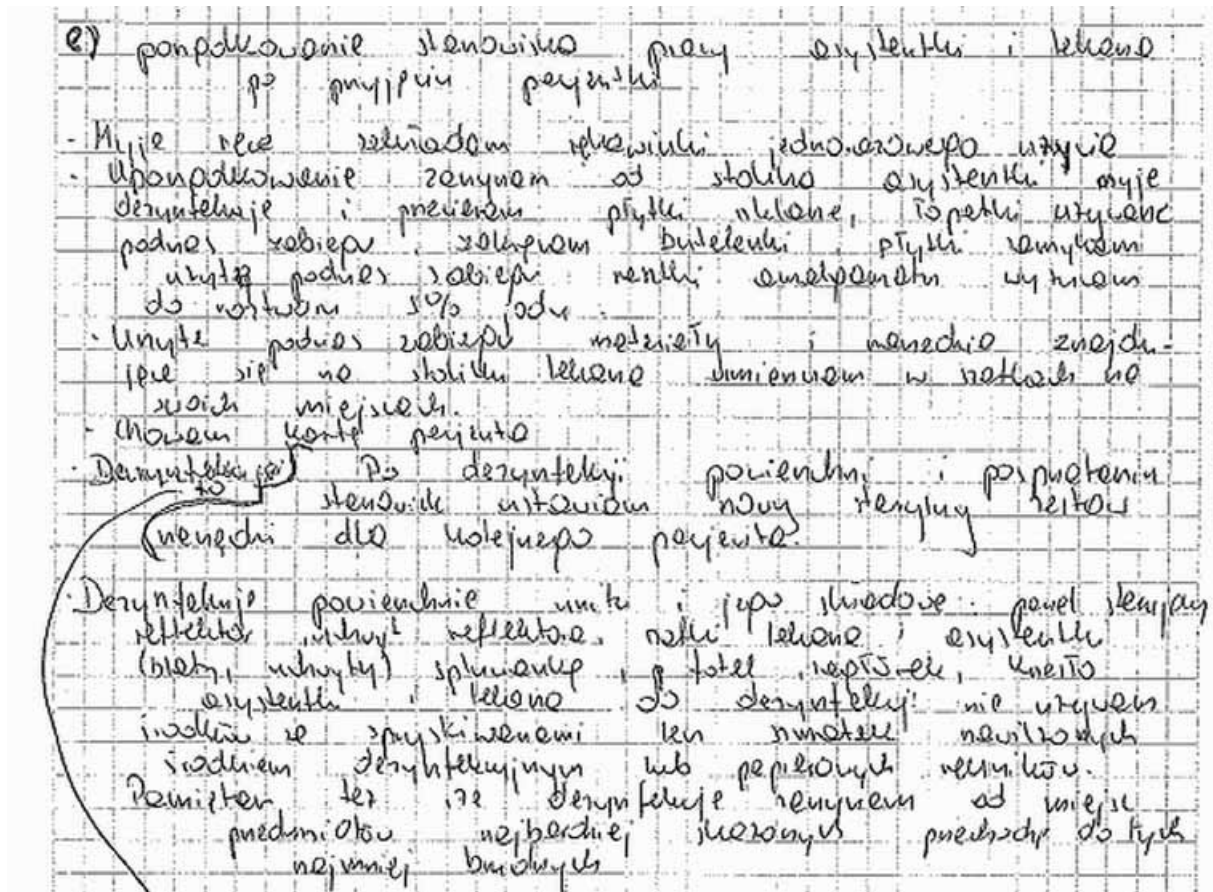 e) porządkowanie stanowiska pracy asystentki i lekarza
po przyjęciu pacjentki
- Myje ręce zakładam rękawiczki jednorazowego użycia
- Uporządkowanie zaczynam od stolika asystentki myje
dezynfekuje i przecieram płytki szklane, łopatki używane
podczas zabiegu, zakręcam buteleczki, płytki zamykam
użyte podczas zabiegu resztki amalgamatu wyrzucam
do roztworu 5% jodu.
- Użyte podczas zabiegu materiały i narzędzia znajdu-
jące się na stoliku lekarza umieszczam w szafkach na
swoich miejscach.
- Chowam kartę pacjenta
- Po dezynfekcji powierzchni i posprzątaniu
stanowisk ustawiam nowy sterylny zestaw
narzędzi dla kolejnego pacjenta.
- Dezynfekuje powierzchnie unitu i jego składowe: panel sterujący
reflektor, uchwyt reflektora, szafki lekarza i asystentki
(blaty, uchwyty) spluwaczkę, fotel, zagłówek, krzesło
asystentki i lekarza do dezynfekcji nie używam
środków ze spryskiwaczami lecz szmatek nawilżonych
środkiem dezynfekcyjnym lub papierowych ręczników.
Pamiętam też że dezynfekuje zaczynam od miejsc
przedmiotów najbardziej skażonych przechodzę do tych
najmniej brudnych